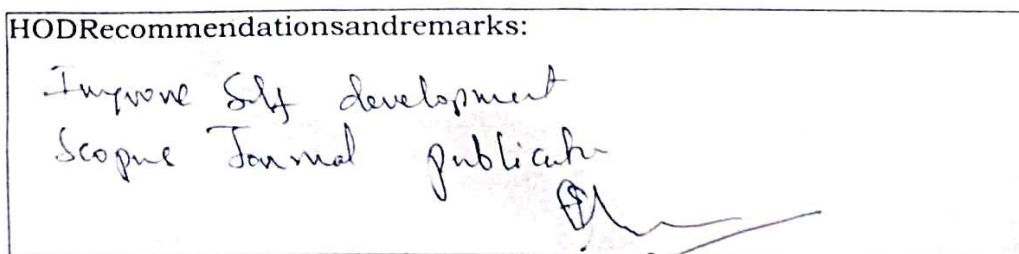 HODRecommendationsandremarks:
Improve Self development
Scopus Journal publication